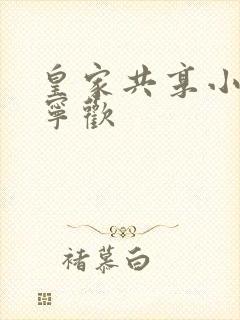 皇家共享小
寧歡
褚慕白